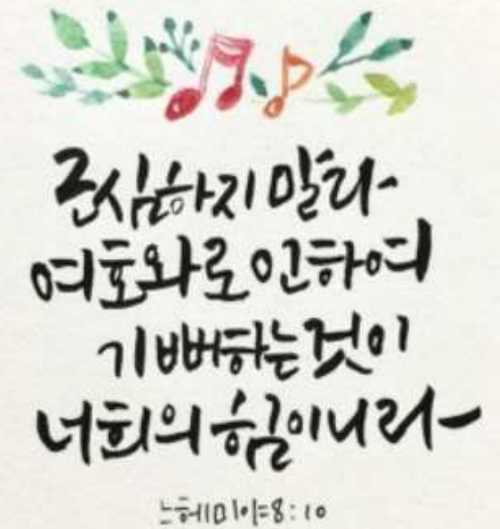 근심하지 말라
여호와로 인하여
기뻐하는 것이
너희의 힘이니라
느헤미야 8:10